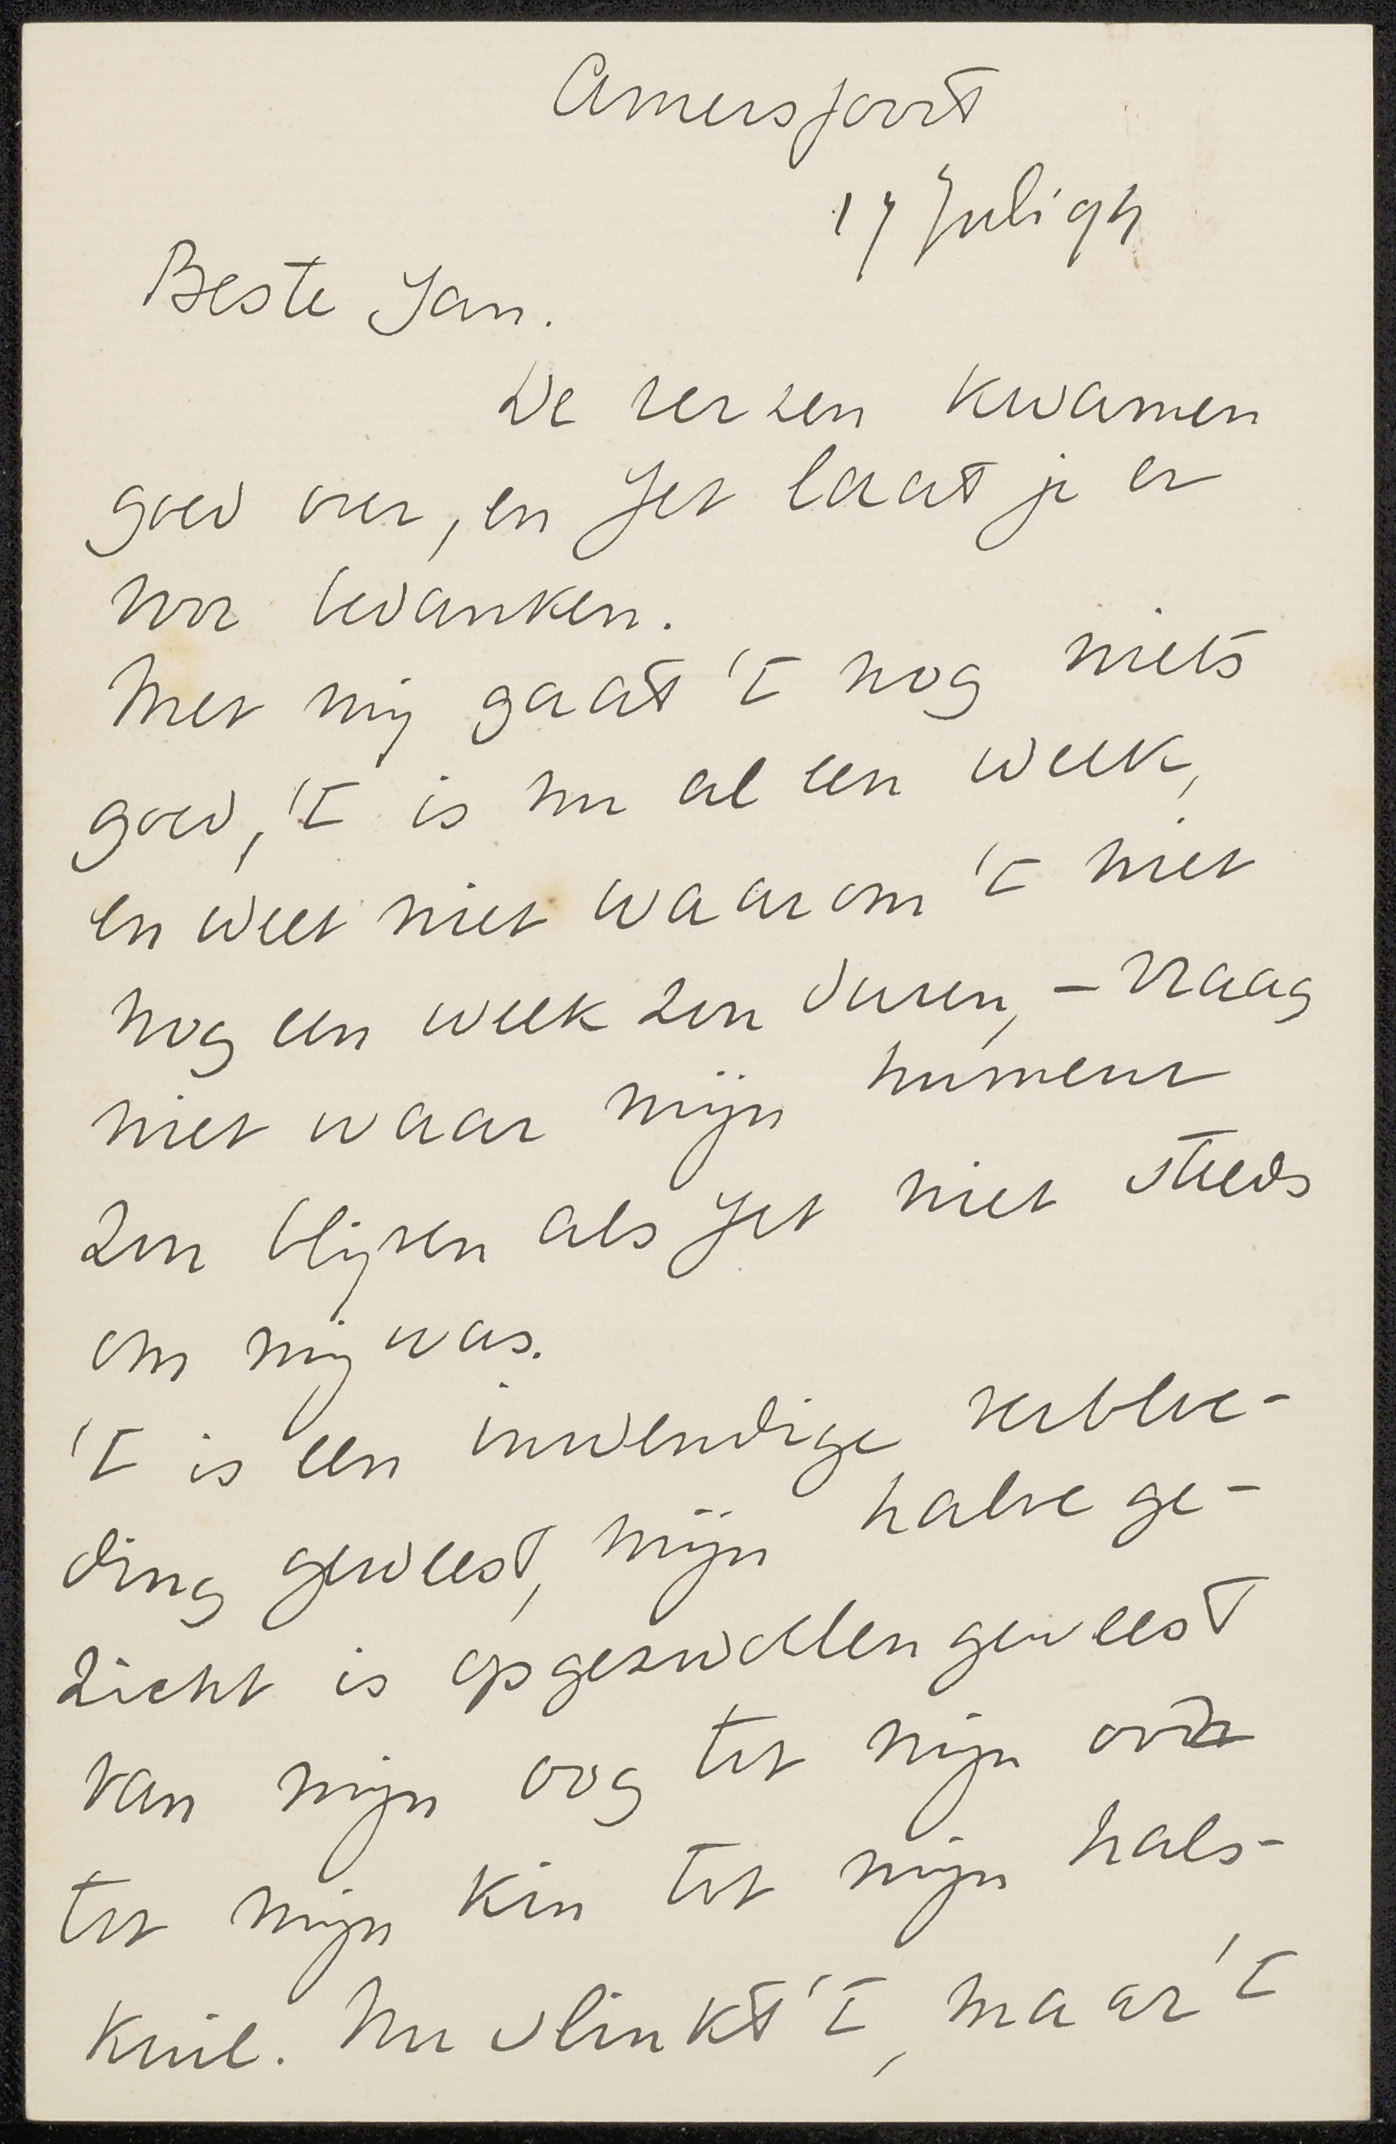 Amersfoort
17 Juli 94
Beste Jan.
De verzen kwamen
goed over, en Jet laat je er
voor bedanken.
Met mij gaat 't nog niets
goed, 't is nu al een week,
en weet niet waarom 't niet
nog een week zou duren, - vraag
niet waar mijn humeur
zou blijven als Jet niet steeds
om mij was.
't is een inwendige verbloe-
ding geweest, mijn halve ge-
zicht is opgezwollen geweest
van mijn oog tot mijn oor
tot mijn kin tot mijn hals-
kuil. Nu slinkt 't, maar 't